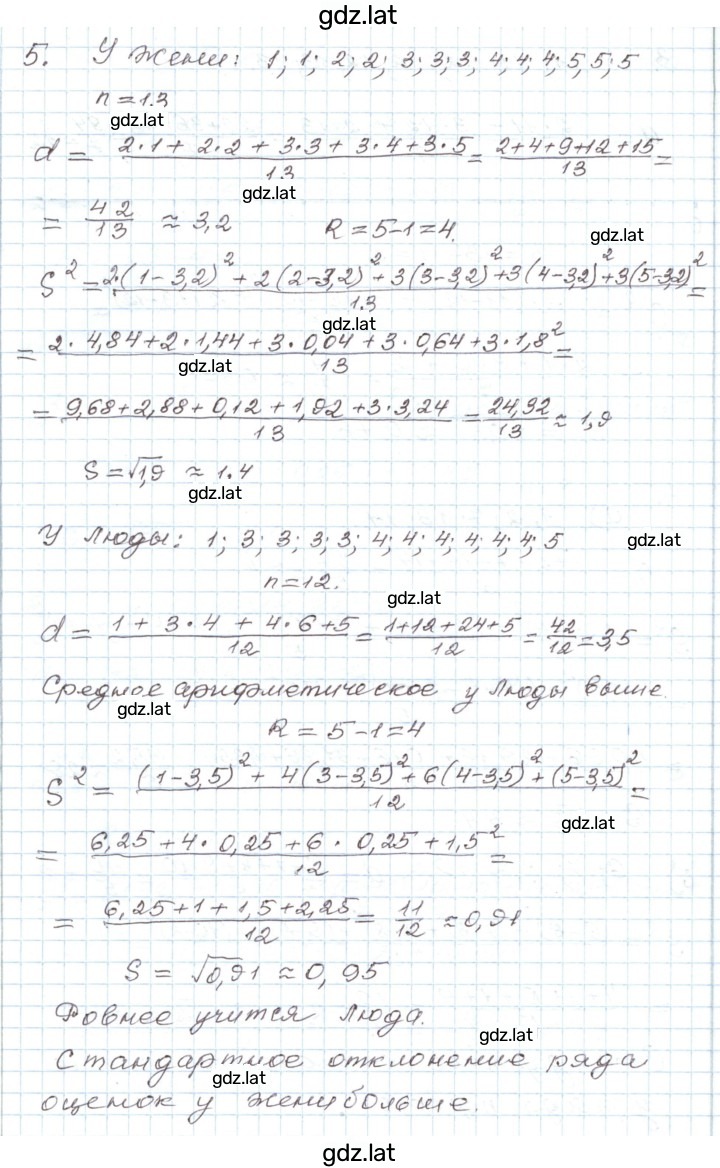 gdz.lat
5. У Жени: 1; 1; 2; 2; 3; 3; 3; 4; 4; 4; 5; 5; 5
n = 13
gdz.lat
d = (2·1 + 2·2 + 3·3 + 3·4 + 3·5)/13 = (2+4+9+12+15)/13 =
gdz.lat
= 42/13 ≈ 3,2 R = 5-1 = 4.
gdz.lat
S² = (2·(1-3,2)² + 2(2-3,2)² + 3(3-3,2)² + 3(4-3,2)² + 3(5-3,2)²)/13 =
gdz.lat
= (2·4,84 + 2·1,44 + 3·0,04 + 3·0,64 + 3·1,8²)/13 =
gdz.lat
= (9,68 + 2,88 + 0,12 + 1,92 + 3·3,24)/13 = 24,32/13 ≈ 1,9
S = √1,9 ≈ 1.4
gdz.lat
У Люды: 1; 3; 3; 3; 3; 4; 4; 4; 4; 4; 4; 5
gdz.lat
n = 12.
gdz.lat
d = (1 + 3·4 + 4·6 + 5)/12 = (1+12+24+5)/12 = 42/12 = 3,5
Среднее арифметическое у Люды выше.
gdz.lat
R = 5-1 = 4
S² = ((1-3,5)² + 4(3-3,5)² + 6(4-3,5)² + (5-3,5)²)/12 =
gdz.lat
= (6,25 + 4·0,25 + 6·0,25 + 1,5²)/12 =
= (6,25 + 1 + 1,5 + 2,25)/12 = 11/12 ≈ 0,91
S = √0,91 ≈ 0,95
Ровнее учится Люда.
gdz.lat
Стандартное отклонение ряда
gdz.lat
оценок у Жени больше.
gdz.lat